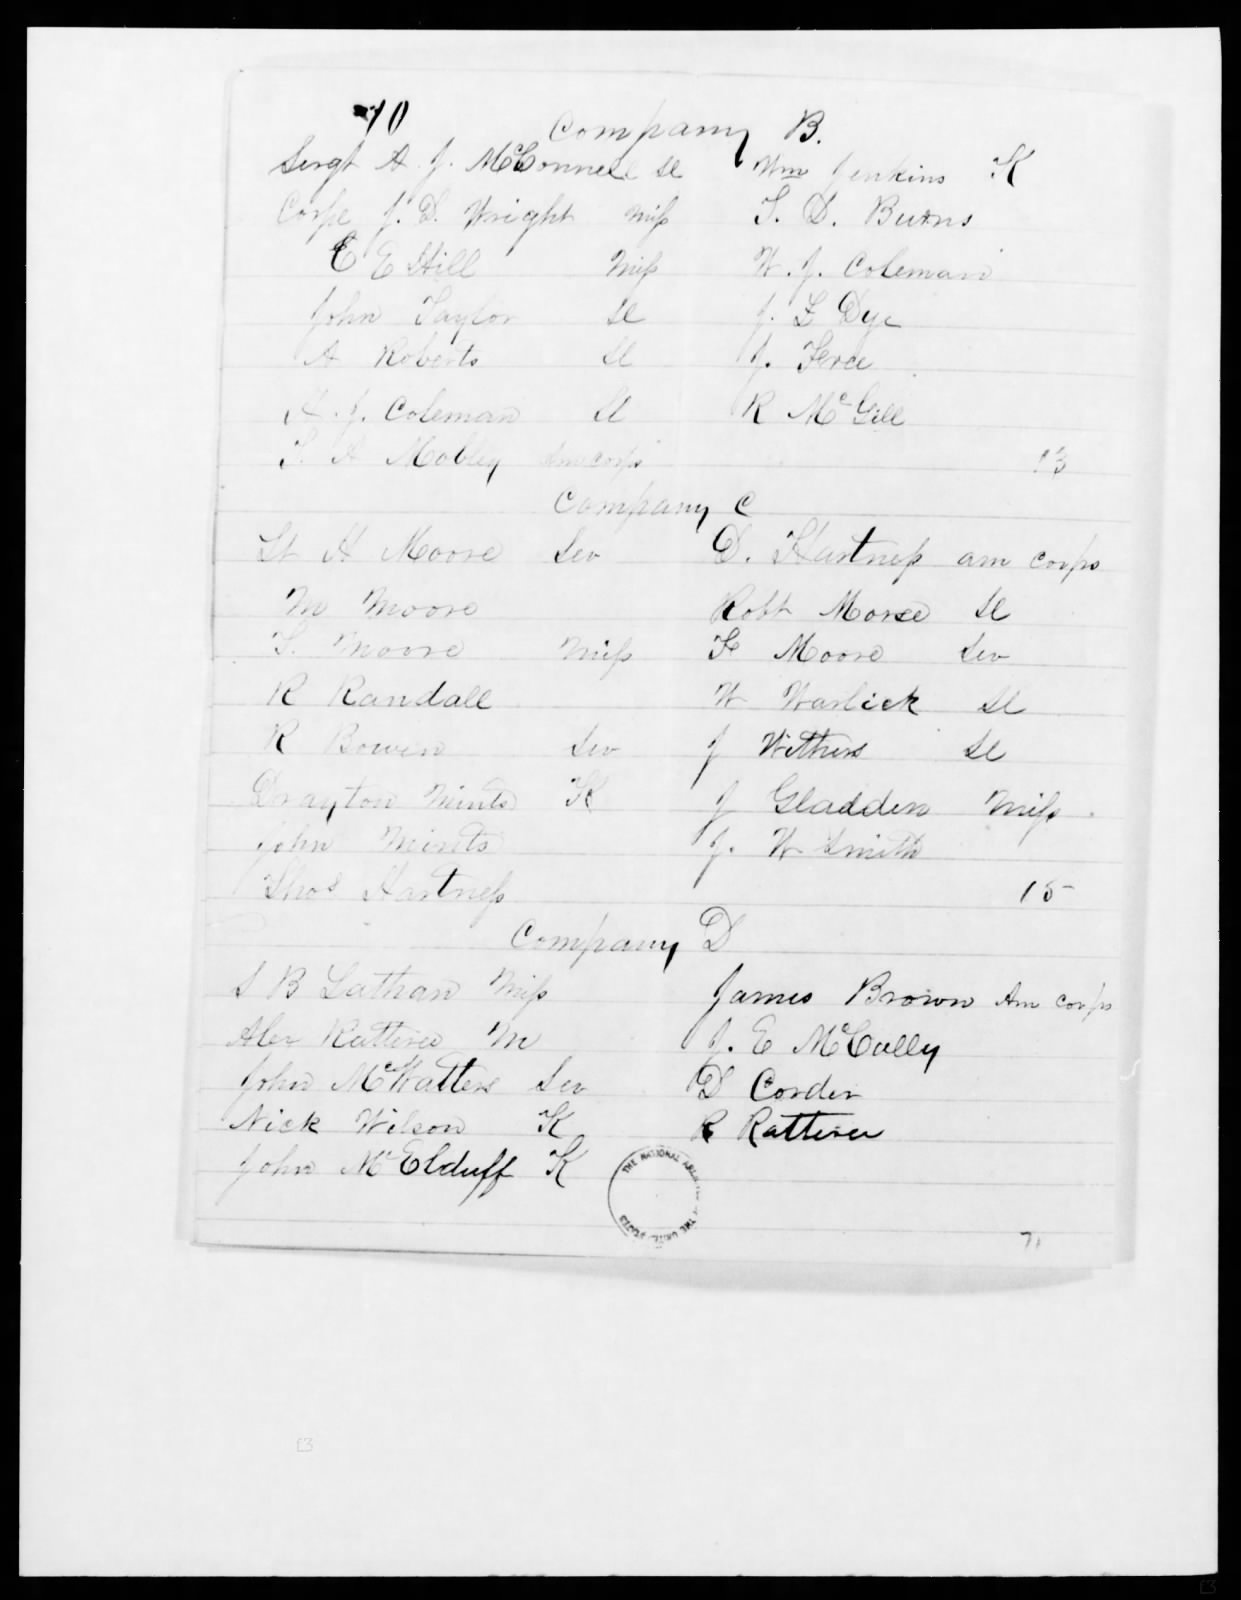 70
Company B.
Sergt A. J. McConnell Sl
Corpl J. D. Wright Miss
E E Hill Miss
John Taylor Sl
A Roberts Sl
H. J. Coleman Sl
T. A Mobley Am corps
Wm Jenkins K
T. D. Burns
W. J. Coleman
J. L Dye
J. Ferce
R McGill
13
Company C
Lt H Moore Sev
M Moore
T. Moore Miss
R Randall
R Bowen Sev
Drayton Mints K
John Mints
Thos Hartness
D. Hartness am corps
Robt Morse Sl
F Moore Sev
W Warlick Sl
J Withers Sl
J Gladden Miss
J. W Smith
15
Company D
S B Lathan Miss
Alex Ratteree M
John McWatters Sev
Nick Wilson K
John McElduff K
James Brown Am corps
J. E McCully
D Corder
R Ratteree
THE NATIONAL ARCHIVES OF THE UNITED STATES
71